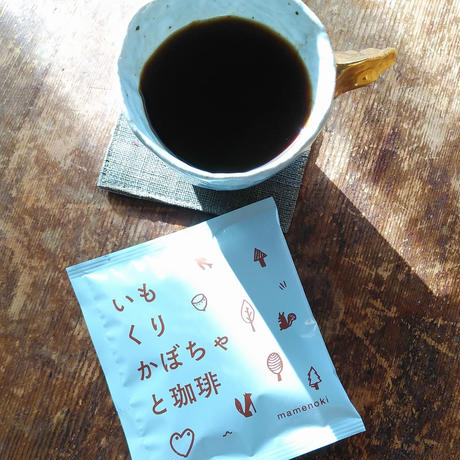 いも
くり
かぼちゃ
と珈琲
mamenoki